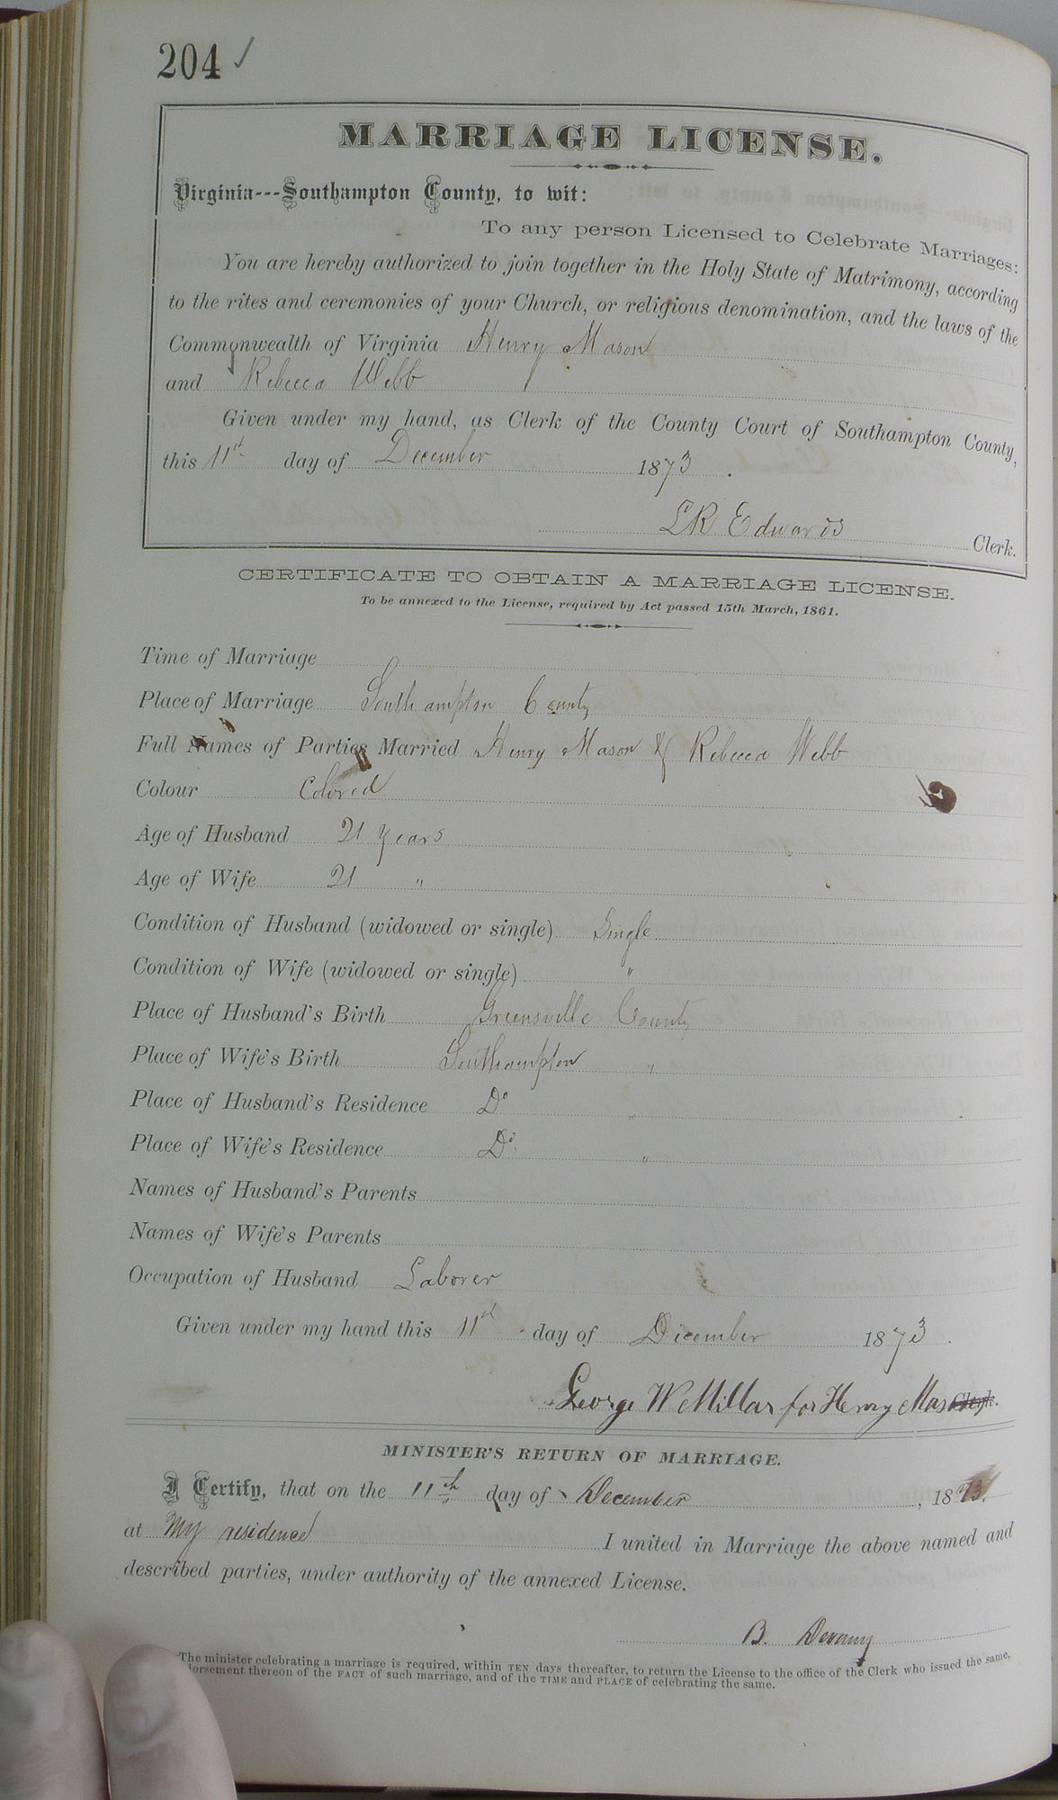 204 ✓
MARRIAGE LICENSE.
Virginia---Southampton County, to wit:
To any person Licensed to Celebrate Marriages:
You are hereby authorized to join together in the Holy State of Matrimony, according
to the rites and ceremonies of your Church, or religious denomination, and the laws of the
Commonwealth of Virginia Henry Mason
and Rebecca Webb
Given under my hand, as Clerk of the County Court of Southampton County,
this 11th day of December 1873.
LR Edwards Clerk.
CERTIFICATE TO OBTAIN A MARRIAGE LICENSE.
To be annexed to the License, required by Act passed 15th March, 1861.
Time of Marriage
Place of Marriage Southampton County
Full Names of Parties Married Henry Mason & Rebecca Webb
Colour Colored
Age of Husband 21 years
Age of Wife 21 "
Condition of Husband (widowed or single) Single
Condition of Wife (widowed or single) "
Place of Husband's Birth Greensville County
Place of Wife's Birth Southampton "
Place of Husband's Residence Do "
Place of Wife's Residence Do "
Names of Husband's Parents
Names of Wife's Parents
Occupation of Husband Laborer
Given under my hand this 11th day of December 1873.
George W Millar for Henry Mas Clerk.
MINISTER'S RETURN OF MARRIAGE.
I Certify, that on the 11th day of December, 1873.
at My residence I united in Marriage the above named and
described parties, under authority of the annexed License.
B.
The minister celebrating a marriage is required, within TEN days thereafter, to return the License to the office of the Clerk who issued the same,
dorsement thereon of the FACT of such marriage, and of the TIME and PLACE of celebrating the same.